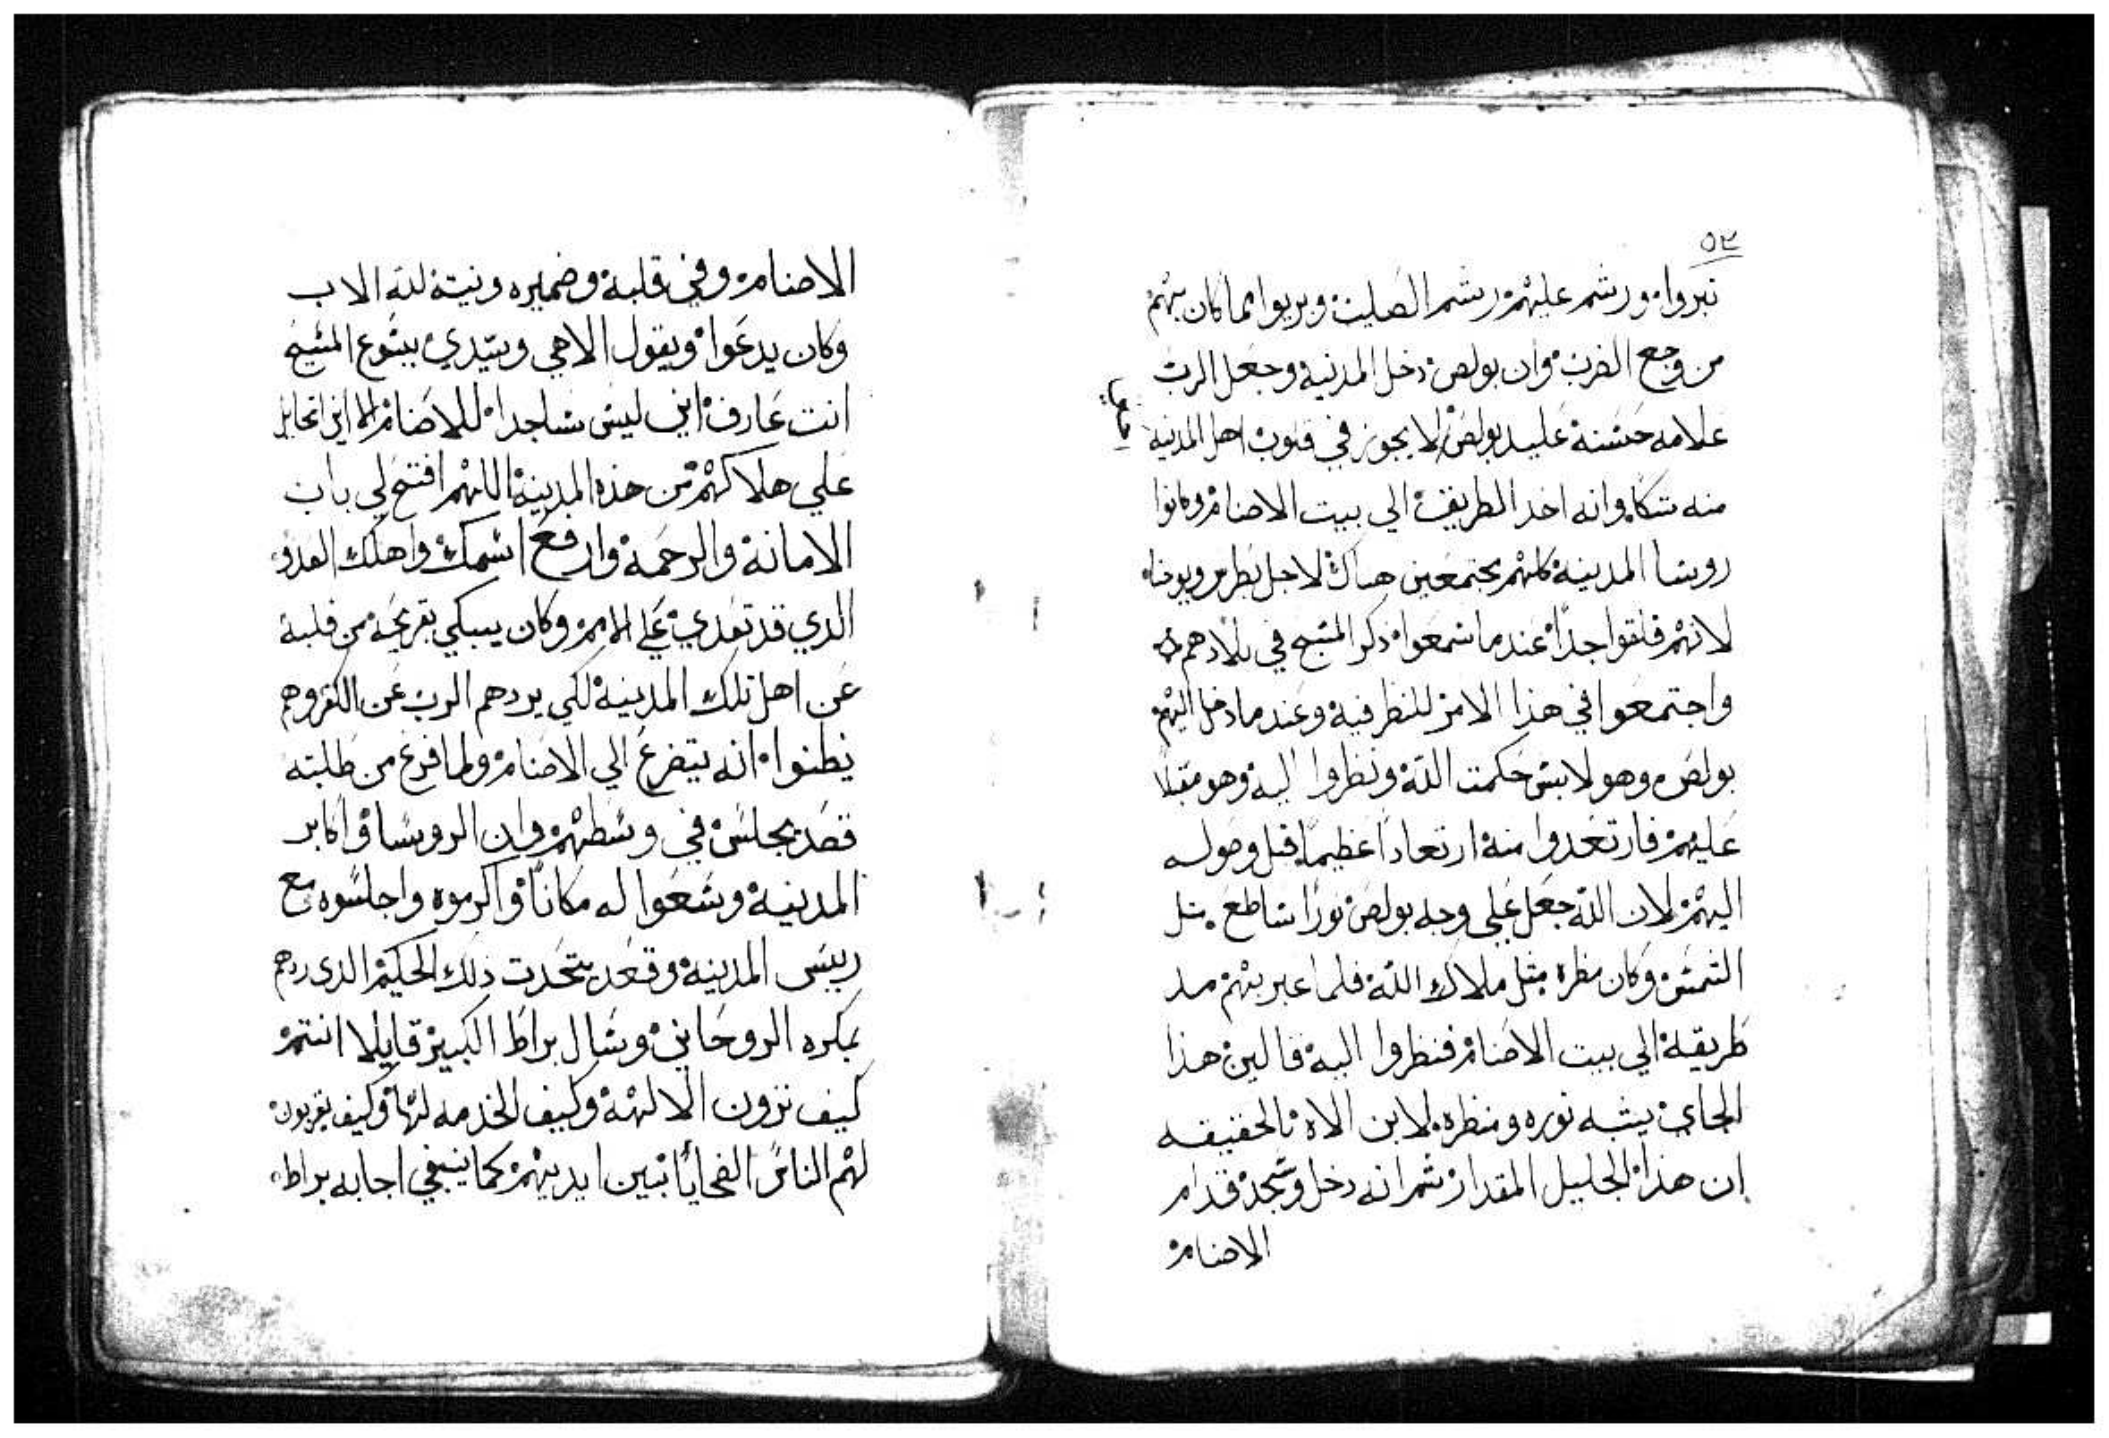 ٥٢
نبروا ورشم عليهم رشم الصليب وبريوا مما كان بهم
من وجع الضرب وان بولص دخل المدينه وجعل الرب
علامه حسنة علي بولص لا يجوز في قلوب اهل المدينه
منه شكا وانه اخد الطريق الي بيت الاصنام وكانوا
روسا المدينة كلهم مجتمعين هناك لاجل بطرس ويوحنا
لانهم قلقوا جداً عند ما سمعوا ذكر المسيح في بلادهم
واجتمعوا في هذا الامر للنظر فيه وعند ما دخل اليهم
بولص وهو لابس حكمت الله ونظروا اليه وهو مقبلا
عليهم فارتعدوا منه ارتعاداً عظيماً قبل وصوله
اليهم لان الله جعل علي وجه بولص نوراً ساطع مثل
الشمس وكان منظره مثل ملاك الله فلما عبر بهم
طريقة الي بيت الاصنام فنظروا اليه قالين هذا
الجاي يشبه نوره ومنظره لابن الاه بالحقيقه
ان هذا الجليل المقدار ثم انه دخل وسجد قدام
الاصنام
الاصنام وفي قلبة وضميره ونيتة لله الاب
وكان يدعوا ويقول الاهي وسيدي يسوع المسيح
انت عارف اني ليس ساجدا للاصنام الا اني اتحايل
علي هلاكهم من هذه المدينة اللهم افتح لي باب
الامانة والرحمة وارفع اسمك واهلك العدو
الدي قد تعدي علي الامم وكان يبكي بقريحة من قلبة
عن اهل تلك المدينة لكي يردهم الرب عن الكفر وهم
يظنوا انه يتضرع الي الاصنام ولما فرغ من طلبته
قصد يجلس في وسطهم وان الروسا واكابر
المدينة وسعوا له مكاناً واكرموه واجلسوه مع
رييس المدينة وقعد يتحدت ذلك الحكيم الدي ردهم
بمكره الروحاني وسال براط الكبير قايلا انتم
كيف ترون الالهة وكيف الخدمه لها وكيف يقربون
لهم الناس الضحايا بين ايديهم كما ينبغي اجابه براط